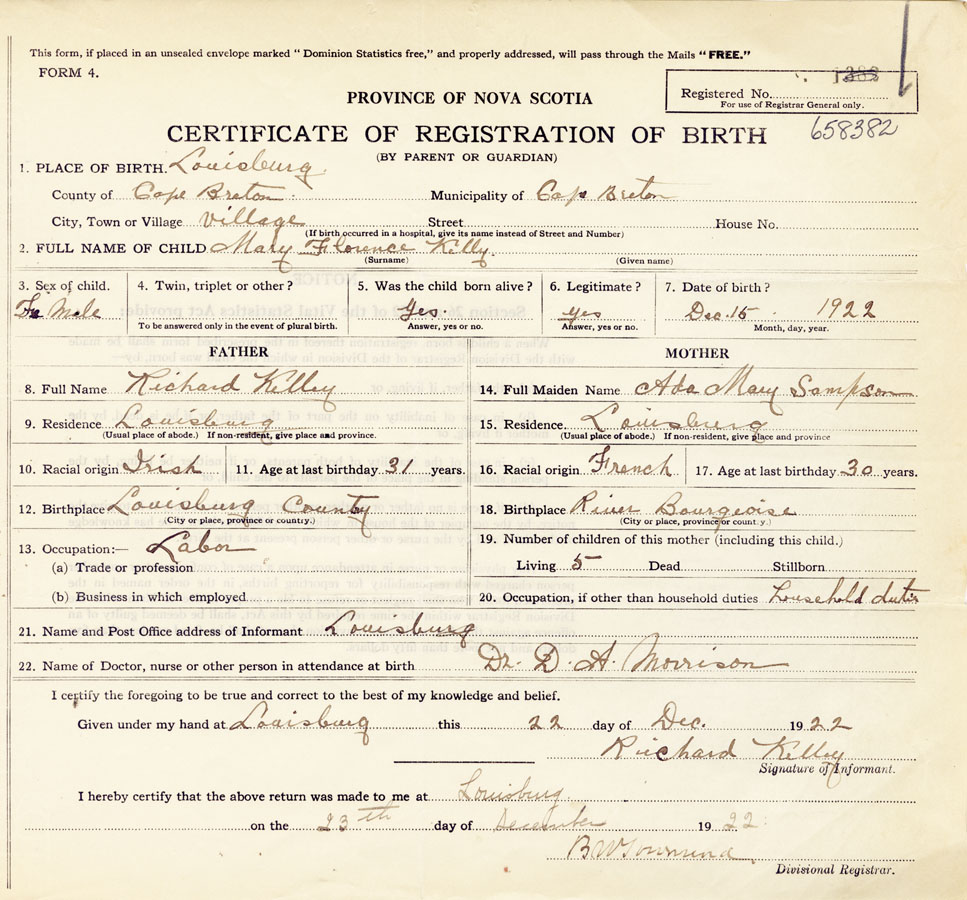 This form, if placed in an unsealed envelope marked "Dominion Statistics free," and properly addressed, will pass through the Mails "FREE."
FORM 4.
Registered No.
For use of Registrar General only.
PROVINCE OF NOVA SCOTIA
CERTIFICATE OF REGISTRATION OF BIRTH 658382
(BY PARENT OR GUARDIAN)
1. PLACE OF BIRTH. Louisburg
County of Cape Breton. Municipality of Cap Breton
City, Town or Village village Street House No.
(If birth occurred in a hospital, give its name instead of Street and Number)
2. FULL NAME OF CHILD Mary Florence Killy.
(Surname) (Given name)
3. Sex of child. 4. Twin, triplet or other? 5. Was the child born alive? 6. Legitimate? 7. Date of birth?
Fe Male Yes. yes Dec. 15 1922
To be answered only in the event of plural birth. Answer, yes or no. Answer, yes or no. Month, day, year.
FATHER MOTHER
8. Full Name Richard Kelley 14. Full Maiden Name Ada Mary Sampson
9. Residence Louisburg 15. Residence. Louisburg
(Usual place of abode.) If non-resident, give place and province. (Usual place of abode.) If non-resident, give place and province
10. Racial origin Irish 11. Age at last birthday 31 years. 16. Racial origin French 17. Age at last birthday 30 years.
12. Birthplace Louisburg County 18. Birthplace River Bourgeoise
(City or place, province or country.) (City or place, province or country.)
13. Occupation:— Labor 19. Number of children of this mother (including this child.)
(a) Trade or profession Living 5 Dead Stillborn
(b) Business in which employed 20. Occupation, if other than household duties household duties
21. Name and Post Office address of Informant Louisburg
22. Name of Doctor, nurse or other person in attendance at birth Dr. D. A. Morrison
I certify the foregoing to be true and correct to the best of my knowledge and belief.
Given under my hand at Louisburg this 22 day of Dec. 1922
Richard Kelley
Signature of Informant.
I hereby certify that the above return was made to me at Louisburg
on the 23th day of December 1922
B W Townsend
Divisional Registrar.